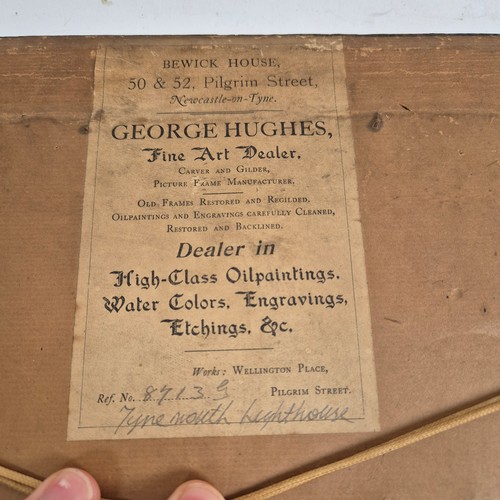 BEWICK HOUSE,
50 & 52, Pilgrim Street,
Newcastle-on-Tyne.
GEORGE HUGHES,
Fine Art Dealer,
CARVER AND GILDER,
PICTURE FRAME MANUFACTURER.
OLD FRAMES RESTORED AND REGILDED.
OILPAINTINGS AND ENGRAVINGS CAREFULLY CLEANED,
RESTORED AND BACKLINED.
Dealer in
High-Class Oilpaintings,
Water Colors, Engravings,
Etchings, &c.
Works: WELLINGTON PLACE,
Ref. No. 87139 PILGRIM STREET.
Tynemouth Lighthouse